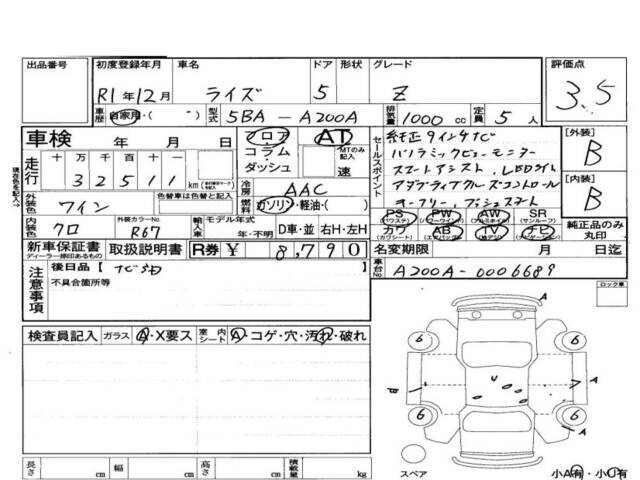 出品番号 初度登録年月 車名 ドア 形状 グレード 評価点
R1年12月 ライズ 5 Z 3.5
車歴 自家用・( ) 型式 5BA-A200A 排気量 1000cc 定員 5人
車検 年 月 日 フロア AT セールスポイント 純正9インチナビ [外装]
走行 十 万 千 百 十 一 コラム MTのみ記入 パノラミックビューモニター B
32511 km ダッシュ 速 スマートアシスト、LEDライト
現在色を記入→ 冷房 AAC アダプティブクルーズコントロール [内装]
外装色 ワイン 色替車は色替と記入 燃料 ガソリン・軽油・( ) オークリー、プッシュスタート B
内装色 クロ 外装カラーNo. R67 輸入車 モデル年式 年・不明 D車・並 右H・左H
PS (パワステ) PW (パワーウインド) AW (アルミホイル) SR (サンルーフ) 純正品のみ丸印
カワ (カワシート) AB (エアバッグ) TV (地デジ) ナビ (ナビゲーション)
新車保証書 取扱説明書 R券 ¥ 8,790 名変期限 月 日迄
ディーラー捺印あるもの
注意事項 後日品【ナビSD 】 車台No. A200A-0006689
不具合箇所等 ロック車
検査員記入 ガラス A・X要ス 室内シート A・コゲ・穴・汚れ・破れ
A
6 6
B A
6 6
A
長さ cm 幅 cm 高さ cm 積載量 kg スペア 小A有・小U有